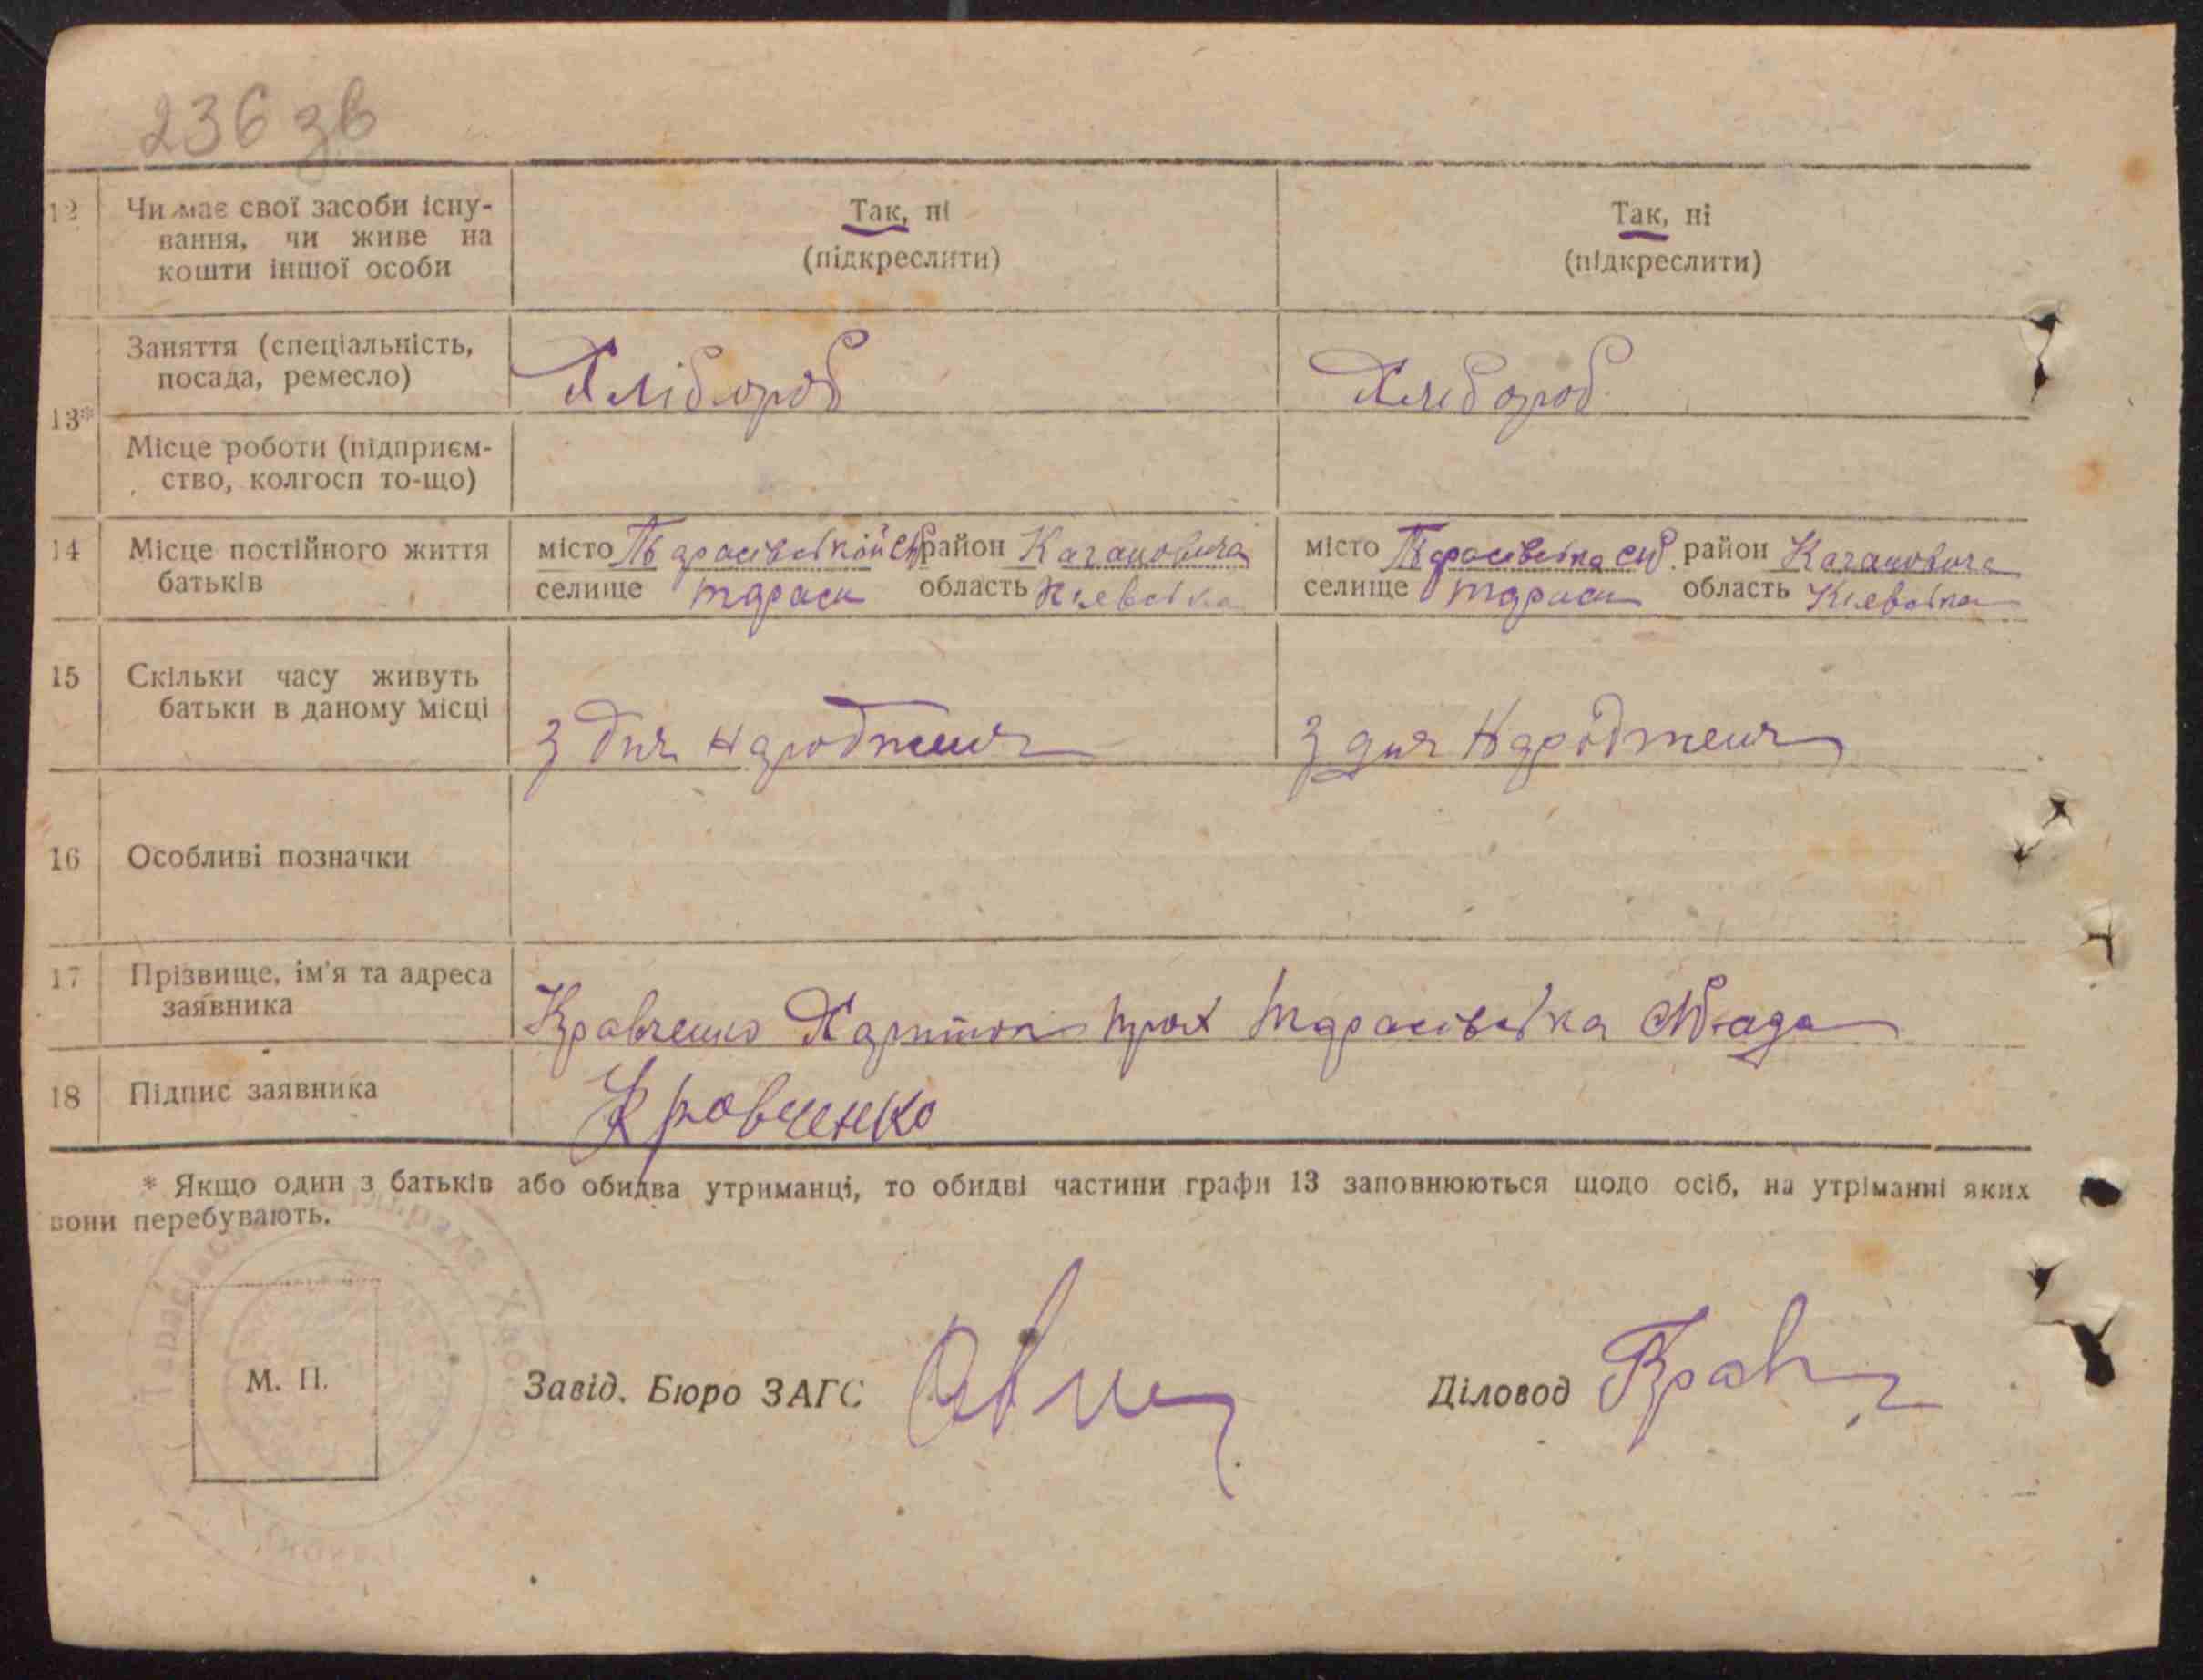 236 зв
12 Чи має свої засоби існу- Так, ні Так, ні
вання, чи живе на (підкреслити) (підкреслити)
кошти іншої особи
13* Заняття (спеціальність, Хлібороб Хлібороб
посада, ремесло)
Місце роботи (підприєм-
ство, колгосп то-що)
14 Місце постійного життя місто Тарасівської с/р район Кагановича місто Тарасівська с/р. район Кагановича
батьків селище тараси область Київська селище тараси область Київська
15 Скільки часу живуть
батьки в даному місці з дня народженя з дня народженя
16 Особливі позначки
17 Прізвище, ім'я та адреса
заявника Кравченко Харитон Тарасівська с/рада
18 Підпис заявника Кравченко
* Якщо один з батьків або обидва утриманці, то обидві частини графи 13 заповнюються щодо осіб, на утріманні яких
вони перебувають.
М. П. Завід. Бюро ЗАГС Діловод Крав